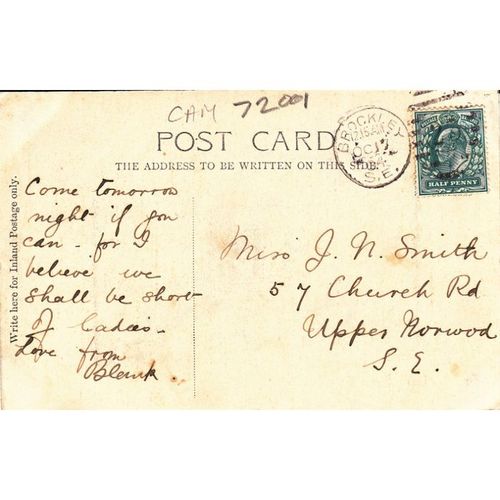 CAM 72001
POST CARD
THE ADDRESS TO BE WRITTEN ON THIS SIDE.
BROCKLEY
12.15AM
OC 17
04
S.E.
HALF PENNY
Write here for Inland Postage only.
Come tomorrow
night if you
can - for I
believe we
shall be short
of Ladies -
Love from
Miss J. N. Smith
57 Church Rd
Upper Norwood
S. E.